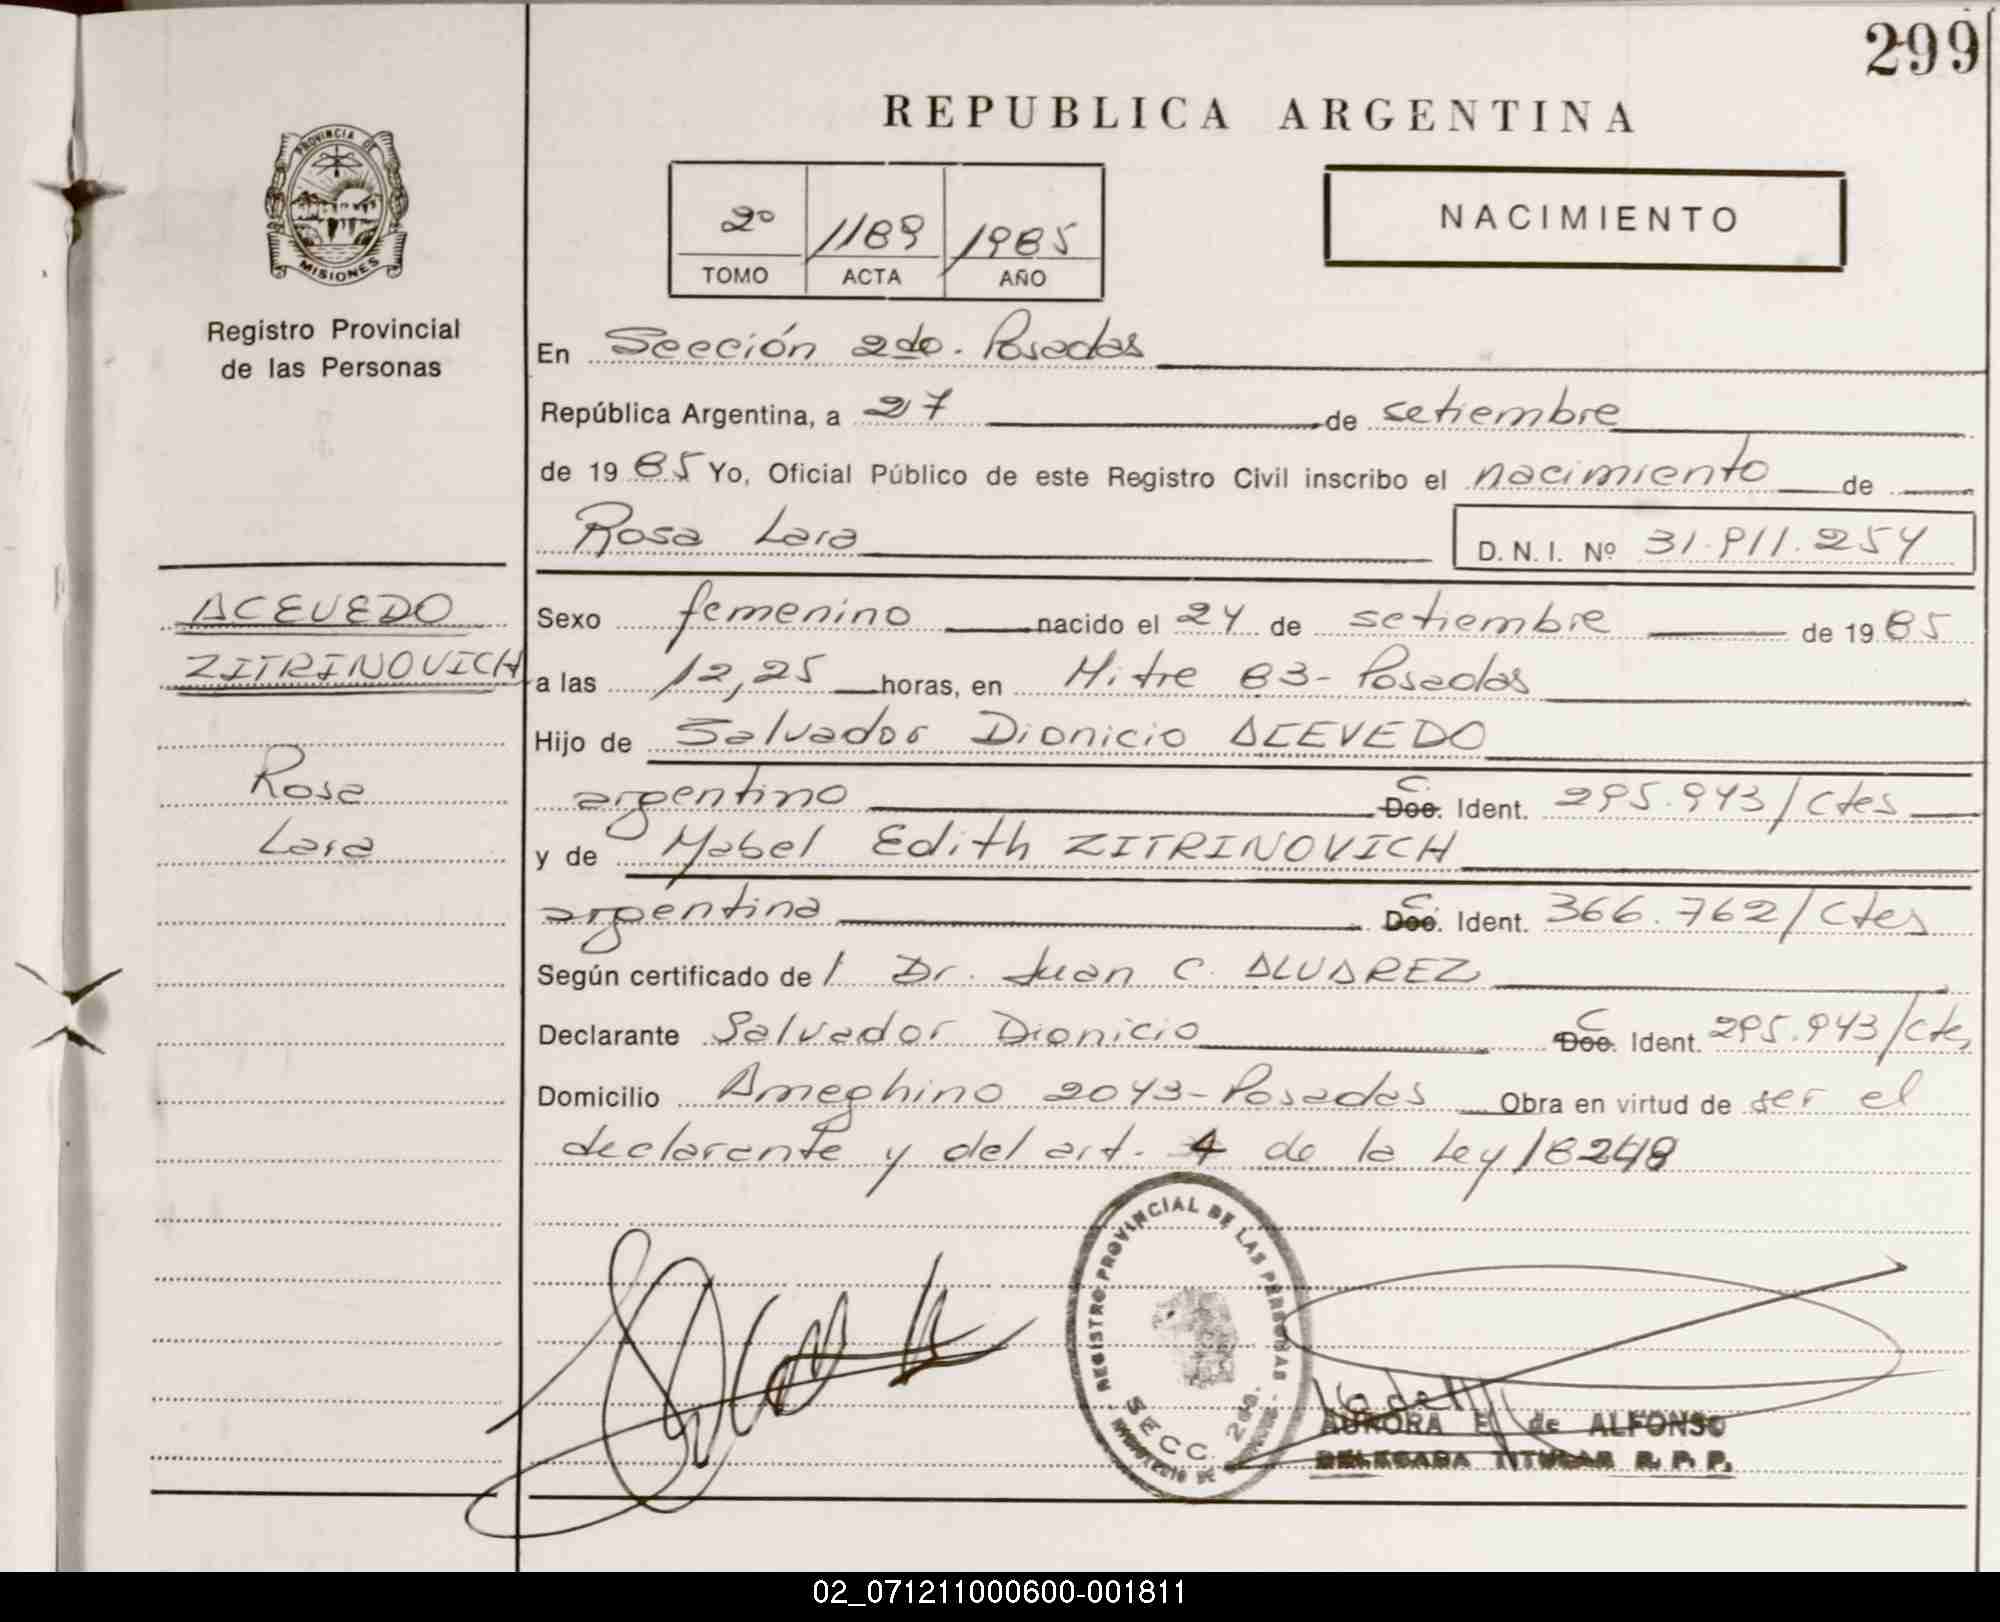 299
REPUBLICA ARGENTINA
PROVINCIA DE
MISIONES
Registro Provincial
de las Personas
2º 1189 1985
TOMO ACTA AÑO
NACIMIENTO
En Sección 2da. Posadas
República Argentina, a 27 de setiembre
de 1985 Yo, Oficial Público de este Registro Civil inscribo el nacimiento de
Rosa Lara D. N. I. Nº 31.911.254
ACEVEDO
ZITRINOVICH
Rosa
Lara
Sexo femenino nacido el 24 de setiembre de 1985
a las 12,25 horas, en Mitre 83 - Posadas
Hijo de Salvador Dionicio ACEVEDO
argentino C. Doc. Ident. 295.943/Ctes
y de Mabel Edith ZITRINOVICH
argentina C. Doc. Ident. 366.762/Ctes
Según certificado de l Dr. Juan C. ALVAREZ
Declarante Salvador Dionicio C Doc. Ident. 295.943/Ctes
Domicilio Ameghino 2043 - Posadas Obra en virtud de ser el
declarante y del art. 4 de la Ley 18248
REGISTRO PROVINCIAL DE LAS PERSONAS
SECC. 2da.
AURORA E. de ALFONSO
DELEGADA TITULAR R. P. P.
02_071211000600-001811